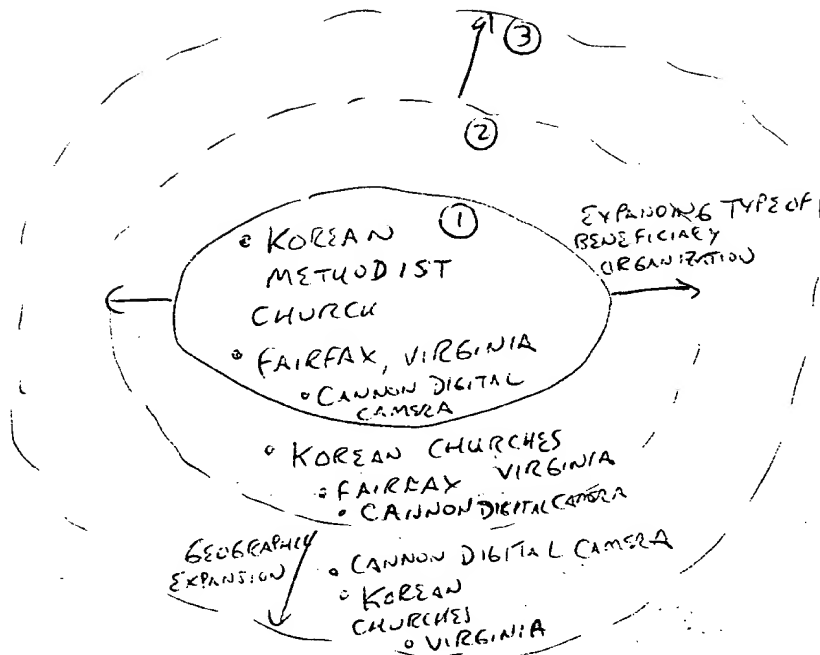 ③
②
①
• KOREAN
METHODIST
CHURCH
• FAIRFAX, VIRGINIA
• CANNON DIGITAL
CAMERA
EXPANDING TYPE OF
BENEFICIARY
ORGANIZATION
• KOREAN CHURCHES
• FAIRFAX VIRGINIA
• CANNON DIGITAL CAMERA
GEOGRAPHIC
EXPANSION
• CANNON DIGITAL CAMERA
• KOREAN
CHURCHES
• VIRGINIA